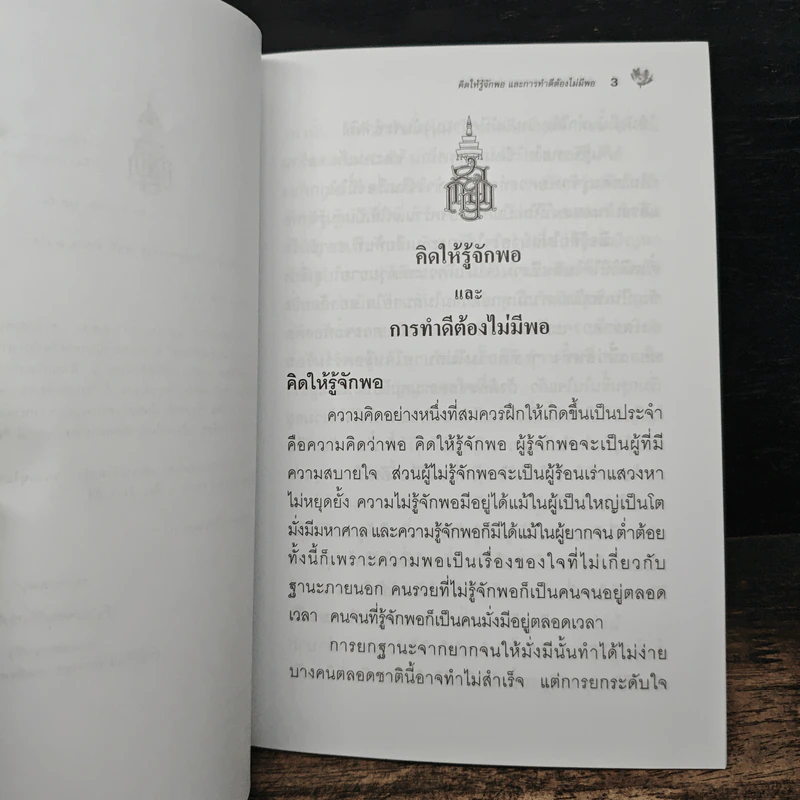 คิดให้รู้จักพอ และการทำดีต้องไม่มีพอ 3
คิดให้รู้จักพอ
และ
การทำดีต้องไม่มีพอ
คิดให้รู้จักพอ
ความคิดอย่างหนึ่งที่สมควรฝึกให้เกิดขึ้นเป็นประจำ
คือความคิดว่าพอ คิดให้รู้จักพอ ผู้รู้จักพอจะเป็นผู้ที่มี
ความสบายใจ ส่วนผู้ไม่รู้จักพอจะเป็นผู้ร้อนเร่าแสวงหา
ไม่หยุดยั้ง ความไม่รู้จักพอมีอยู่ได้แม้ในผู้เป็นใหญ่เป็นโต
มั่งมีมหาศาล และความรู้จักพอก็มีได้แม้ในผู้ยากจน ต่ำต้อย
ทั้งนี้ก็เพราะความพอเป็นเรื่องของใจที่ไม่เกี่ยวกับ
ฐานะภายนอก คนรวยที่ไม่รู้จักพอก็เป็นคนจนอยู่ตลอด
เวลา คนจนที่รู้จักพอก็เป็นคนมั่งมีอยู่ตลอดเวลา
การยกฐานะจากยากจนให้มั่งมีนั้นทำได้ไม่ง่าย
บางคนตลอดชาตินี้อาจทำไม่สำเร็จ แต่การยกระดับใจ